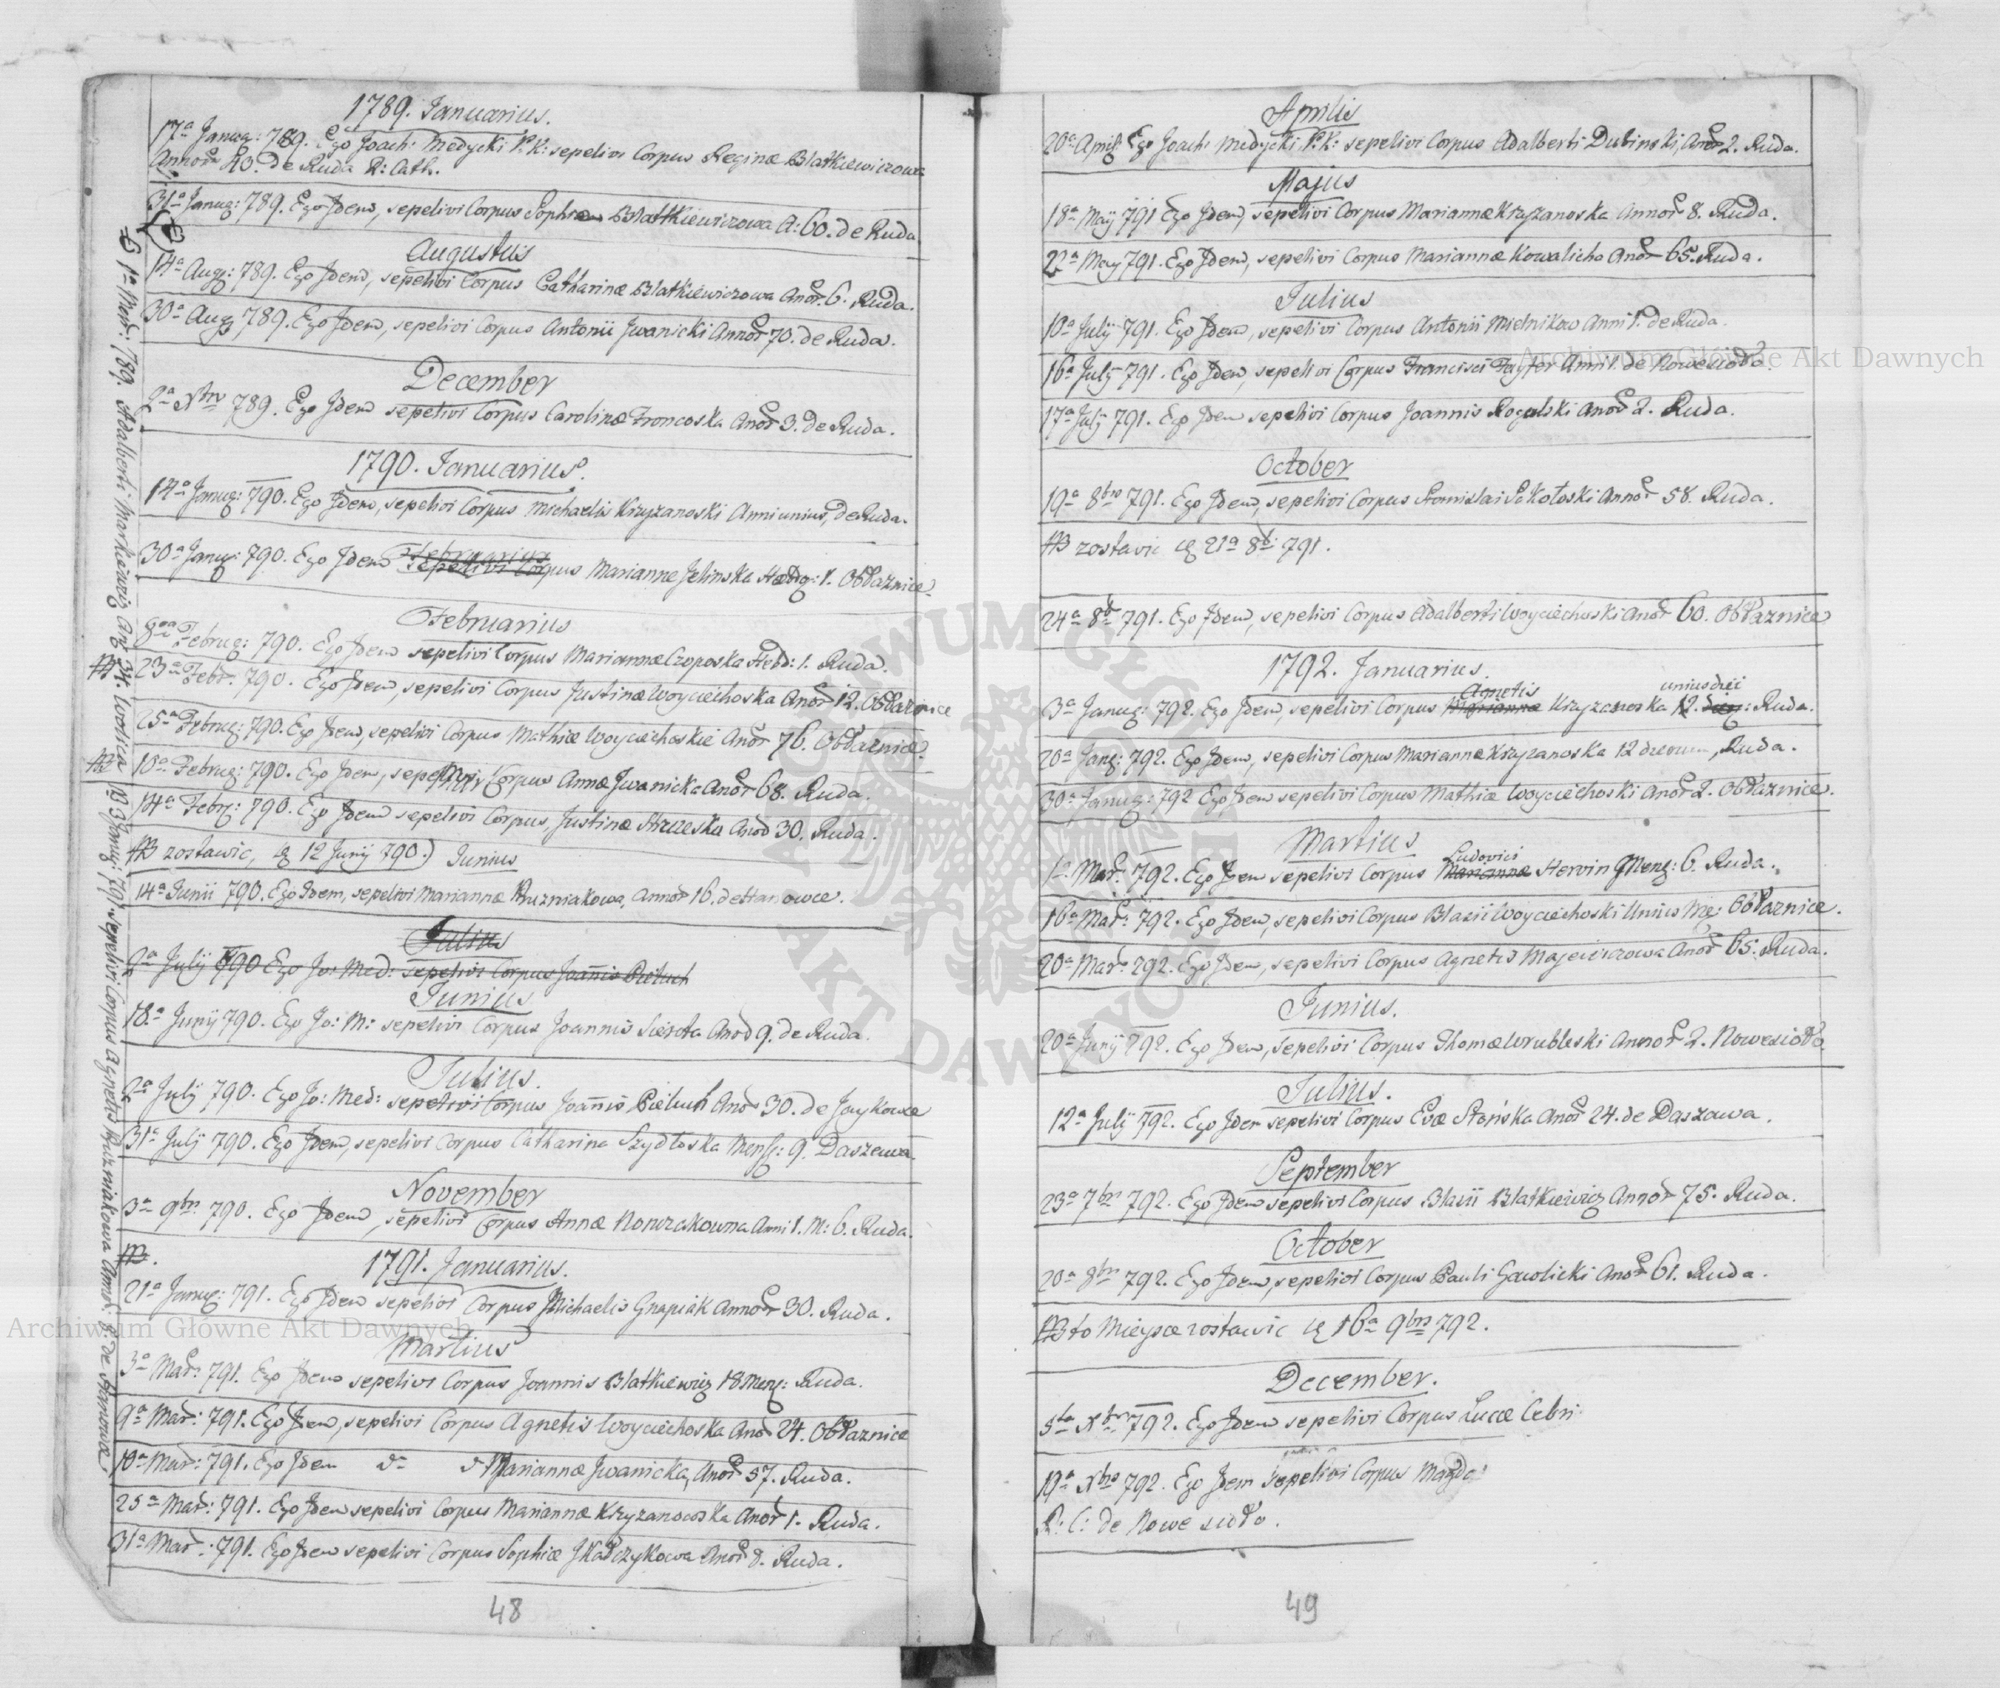 1789. Januarius.
17a Janua: 789. Ego Joach: Medycki P. K: sepelivi Corpus Reginæ Blatkiewiczowa
Annor 40. de Ruda R: Cath.
31a Januar: 789. Ego Idem, sepelivi Corpus Sophiæ Blatkiewiczowa A: 60. de Ruda
Augustus
14a Aug: 789. Ego Idem, sepelivi Corpus Catharinæ Blatkiewiczowa Anor. 6. Ruda.
30a Aug 789. Ego Idem, sepelivi Corpus Antonii Iwanicki Annor 70. de Ruda.
December
2a Xbr 789. Ego Idem sepelivi Corpus Carolinæ Froncoska Anor 3. de Ruda.
1790. Januarius.
14a Januar: 790. Ego Idem, sepelivi Corpus Michaelis Krzyzanoski Anni unius, de Ruda.
30a Januar: 790. Ego Idem Februarius
sepelivi Corpus Mariannæ Jelinska Hebdg: 1. Obłaznice.
Februarius
8va Februar: 790. Ego Idem sepelivi Corpus Mariannæ Czoposka Hebd: 1. Ruda.
NB 23a Febr. 790. Ego Idem, sepelivi Corpus Justinæ Woyciechoska Anor 12. Obłaznice
25a Februar: 790. Ego Idem, sepelivi Corpus Mathiæ Woyciechoskie Anor 76. Obłaznice.
NB 10a Februar: 790. Ego Idem, sepelivi Corpus Annæ Iwanicka Anor 68. Ruda.
14a Febr: 790. Ego Idem sepelivi Corpus, Justinæ Anor 30. Ruda.
NB zostawic, q 12 Junij 790.) Junius
14a Junii 790. Ego Idem, sepelivi Mariannæ Kuzniakowa, Annor 16. de Hanowce.
Julius
2a July 790 Ego Jo: Med: sepelivi Corpus Joannis Pietuch
Junius
18.a Junij 790. Ego Jo: M: sepelivi Corpus Joannis Sierota Anor 9. de Ruda.
Julius.
2a July 790. Ego Jo: Med: sepelivi Corpus Joannis Pietuch Anor 30. de Jaykowce
31a July 790. Ego Idem, sepelivi Corpus Catharina Szydłoska Mens: 9. Daszawa.
November
3a 9br 790. Ego Idem, sepelivi Corpus Annæ Nowakowna Anni 1. M: 6. Ruda.
NB.
1791. Januarius.
21a Januar: 791. Ego Idem sepelivi Corpus Michaelis Gnapiak Annor 30. Ruda.
Martius
3a Mar: 791. Ego Idem sepelivi Corpus Joannis Blatkiewicz 18 Mens: Ruda.
9a Mar: 791. Ego Idem, sepelivi Corpus Agnetis Woyciechoska Anor 24. Obłaznice
10a Mar: 791. Ego Idem do do Mariannæ Iwanicka, Anor 57. Ruda.
25a Mar: 791. Ego Idem sepelivi Corpus Mariannæ Krzyzanowska Anor 1. Ruda.
31a Mar: 791. Ego Idem sepelivi Corpus Sophiæ Anor 8. Ruda.
1a 789. Adalberti Markiewicz An 34.
3 Janu: 791 sepelivi Corpus Agnetis Kuzniakowa Annor: 8. de Hanowce.
48
Aprilis
20a April Ego Joach: Medycki P. K: sepelivi Corpus Adalberti Dubinski, Anor 2. Ruda.
Majus
18a May 791 Ego Idem, sepelivi Corpus Mariannæ Krzyzanoska Annor 8. Ruda.
22a May 791. Ego Idem, sepelivi Corpus Mariannæ Kowalicho Anor 65. Ruda.
Julius
10a July 791. Ego Idem, sepelivi Corpus Antonii Mielnikow Anni 1. de Ruda.
16a July 791. Ego Idem, sepelivi Corpus Francisci Fayfer Anni 1. de Nowesioło.
17a July 791. Ego Idem sepelivi Corpus Joannis Rogulski Anor 2. Ruda.
October
19a 8bris 791. Ego Idem, sepelivi Corpus Stanislai Sokołoski Annor 58. Ruda.
NB zostawic q 21a 8b 791.
24a 8b 791. Ego Idem, sepelivi Corpus Adalberti Woyciechoski Anor 60. Obłaznice
1792. Januarius.
Agnetis unius diei
3a Januar: 792. Ego Idem, sepelivi Corpus Mariannæ Krzyzanoska 12. : Ruda.
20a Jang: 792. Ego Idem, sepelivi Corpus Mariannæ Krzyzanoska 12 dierum, Ruda.
30a Januar: 792 Ego Idem sepelivi Corpus Mathiæ Woyciechoski Anor 2. Obłaznice.
Martius
Ludovici
1a Mar: 792. Ego Idem sepelivi Corpus Mariannæ Hervin Mens: 6. Ruda.
16a Mar: 792. Ego Idem, sepelivi Corpus Blasii Woyciechoski Unius Obłaznice.
20a Mar: 792. Ego Idem, sepelivi Corpus Agnetis Majewiczowa Anor 65. Ruda.
Junius.
20a Junij 792. Ego Idem, sepelivi Corpus Thomæ Wrubleski Annor 2. Nowesioło.
Julius.
12a July 792. Ego Idem sepelivi Corpus Evæ Stońska Anor 24. de Daszawa.
September
23a 7bris 792. Ego Idem sepelivi Corpus Blasii Blatkiewicz Annor 75. Ruda.
October
20a 8bris 792. Ego Idem, sepelivi Corpus Pauli Gawlicki Anor 61. Ruda.
NB to Mieysce zostawic q 16a 9bris 792.
December.
5ta Xbr 792. Ego Idem sepelivi Corpus Lucæ
19a Xbris 792. Ego Idem sepelivi Corpus
R: C: de Nowe sioło.
49
Archiwum Główne Akt Dawnych
Archiwum Główne Akt Dawnych
ARCHIWUM GŁÓWNE AKT DAWNYCH